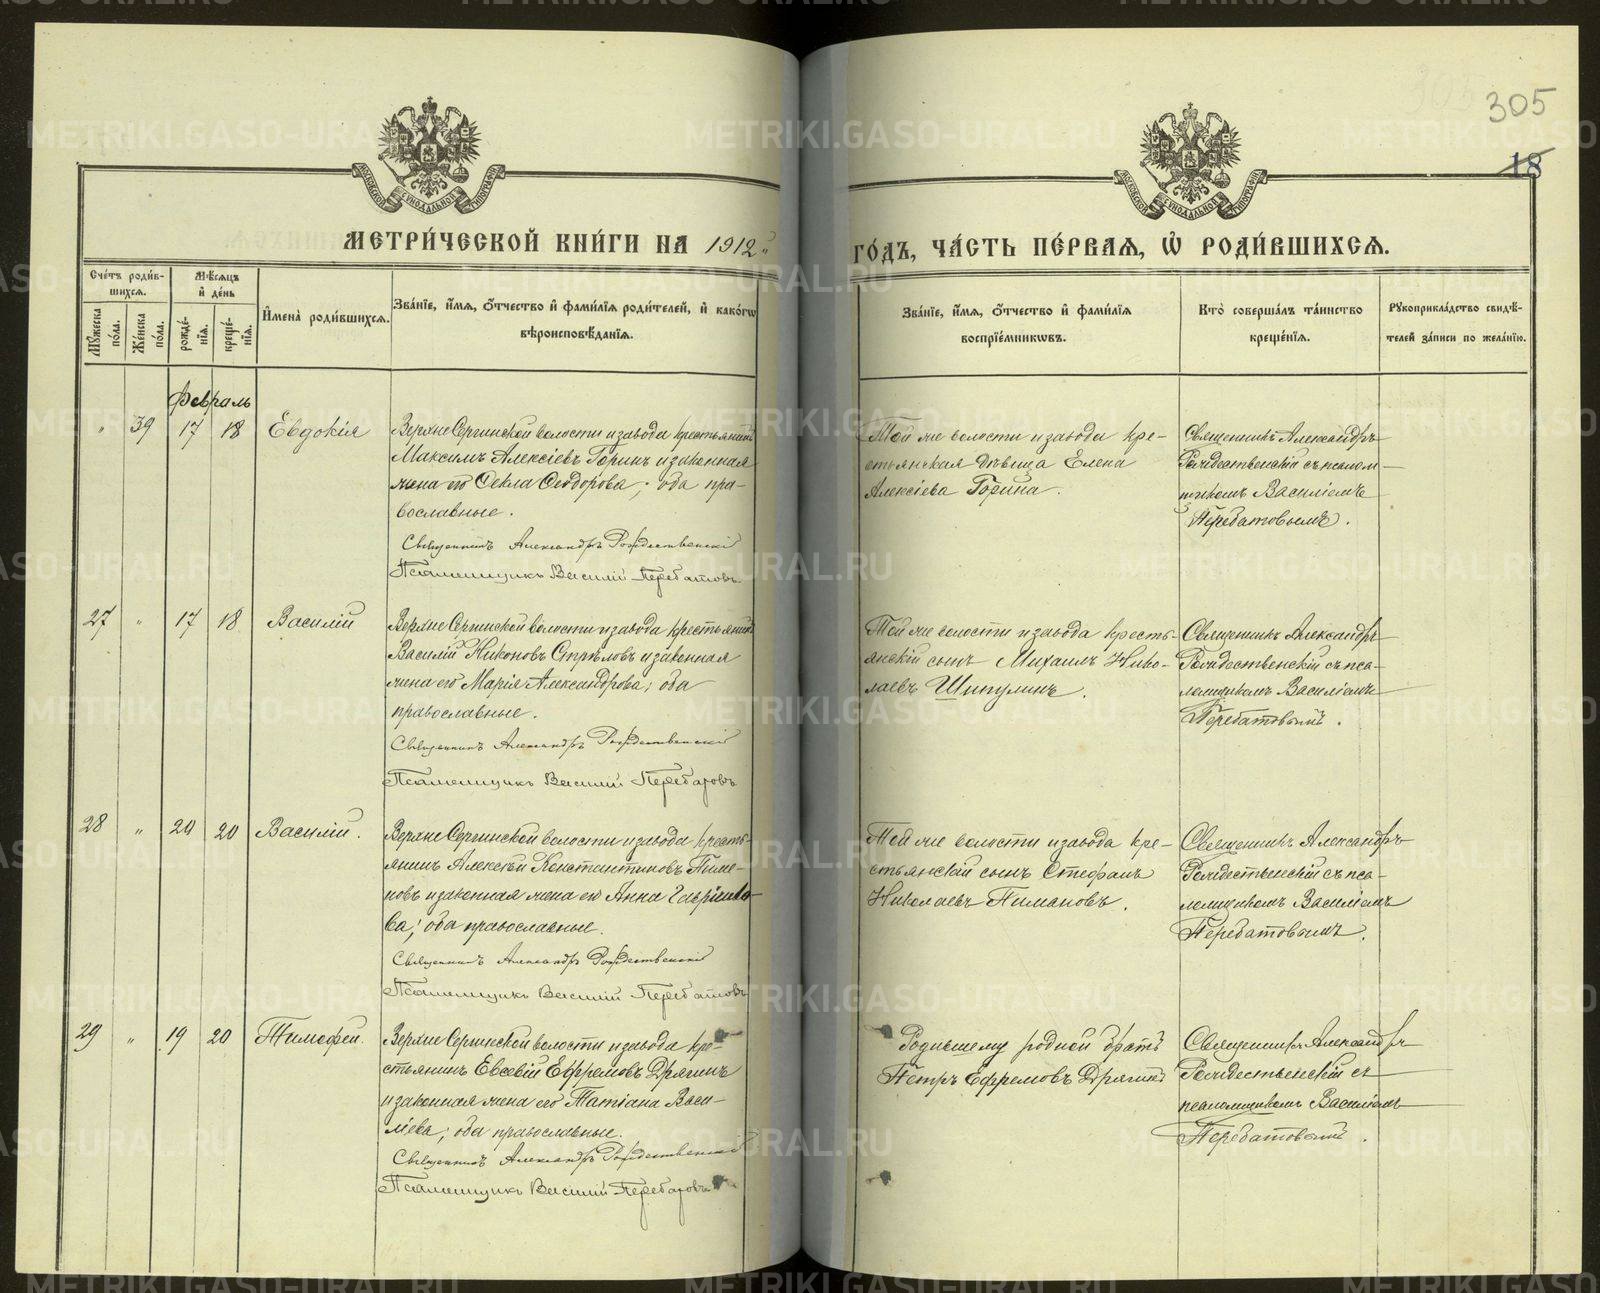 305
18
МОСКОВСКОЙ СѴНОДАЛЬНОЙ ТИПОГРАФІИ
МОСКОВСКОЙ СѴНОДАЛЬНОЙ ТИПОГРАФІИ
МЕТРИ́ЧЕСКОЙ КНИ́ГИ НА 1912 ГО́ДЪ, ЧА́СТЬ ПЕ́РВАЯ, Ѡ РОДИ́ВШИХСЯ.
Сче́тъ роди́в-
шихся.
Мꙋ́жеска по́ла.
Же́нска по́ла.
Мѣ́сяцъ
и҆ де́нь
рожде́-
нїя.
креще́-
нїя.
И҆мена̀ роди́вшихся.
Зва́нїе, и҆́мя, ѻ҆́тчество и҆ фами́лїя роди́телей, и҆ како́гѡ
вѣроисповѣ́данїя.
Зва́нїе, и҆́мя, ѻ҆́тчество и҆ фами́лїя
воспрїе́мникѡвъ.
Кто̀ соверша́лъ та́инство
креще́нїя.
Рꙋкоприкла́дство свидѣ́-
телей за́писи по жела́нїю.
Февраль
" 39 17 18 Евдокія
Верхне Сергинской волости и завода крестьянинъ
Максимъ Алексіевъ Горинъ и законная
жена его Фекла Феодорова; оба пра-
вославные.
Священникъ Александръ Рождественскій
Псаломщикъ Василій Перебатовъ
Той же волости и завода кре-
стьянская дѣвица Елена
Алексіева Горина.
Священникъ Александръ
Рождественскій съ псалом-
щикомъ Василіемъ
Перебатовымъ.
27 " 17 18 Василій
Верхне Сергинской волости и завода крестьянинъ
Василій Никоновъ Стрѣловъ и законная
жена его Марія Александрова; оба
православные.
Священникъ Александръ Рождественскій
Псаломщикъ Василій Перебатовъ
Той же волости и завода кресть-
янскій сынъ Михаилъ Нико-
лаевъ Шипулинъ.
Священникъ Александръ
Рождественскій съ пса-
ломщикомъ Василіемъ
Перебатовымъ.
28 " 20 20 Василій.
Верхне Сергинской волости и завода кресть-
янинъ Алексѣй Константиновъ Пима-
новъ и законная жена его Анна Гавріило-
ва; оба православные.
Священникъ Александръ Рождественскій
Псаломщикъ Василій Перебатовъ
Той же волости и завода кре-
стьянскій сынъ Стефанъ
Николаевъ Пимановъ.
Священникъ Александръ
Рождественскій съ пса-
ломщикомъ Василіемъ
Перебатовымъ.
29 " 19 20 Тимофей.
Верхне Сергинской волости и завода кре-
стьянинъ Евсевій Ефремовъ Дрягинъ
и законная жена его Татіана Васи-
ліева; оба православные.
Священникъ Александръ Рождественскій
Псаломщикъ Василій Перебатовъ
Родившему родной братъ
Петръ Ефремовъ Дрягинъ
Священникъ Александръ
Рождественскій съ
псаломщикомъ Василіемъ
Перебатовымъ.
METRIKI.GASO-URAL.RU